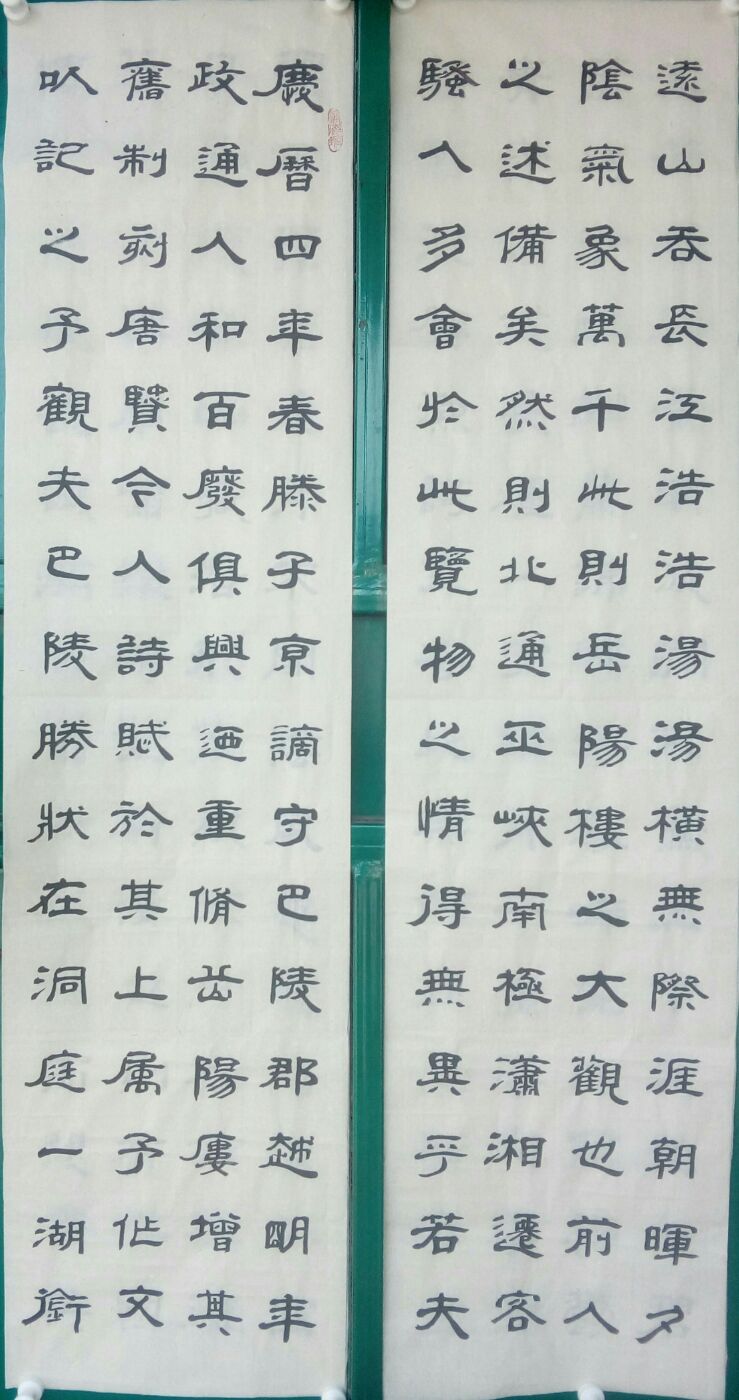 慶曆四年春滕子京謫守巴陵郡越明年
政通人和百廢俱興迺重脩岳陽廔增其
舊制刻唐賢今人詩賦於其上属予作文
以記之予觀夫巴陵勝狀在洞庭一湖銜
遠山吞長江浩浩湯湯橫無際涯朝暉夕
陰氣象萬千此則岳陽樓之大觀也前人
之述備矣然則北通巫峽南極瀟湘遷客
騷人多會於此覽物之情得無異乎若夫